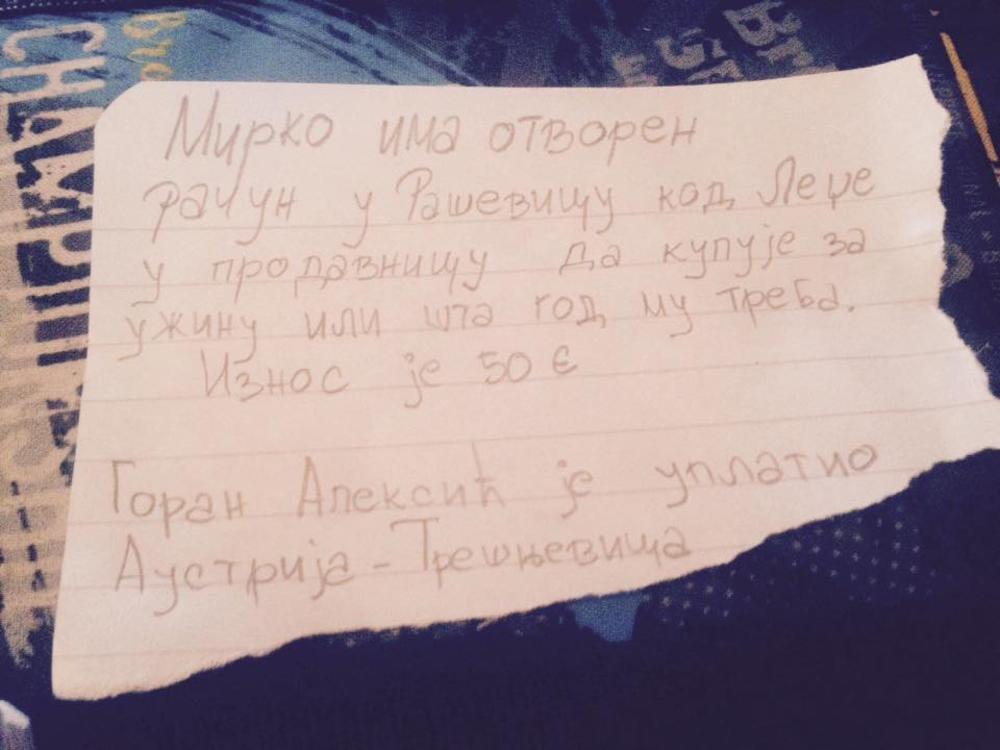 Мирко има отворен
рачун у Рашевицу код Леце
у продавницу да купује за
ужину или шта год му треба.
Износ је 50 €
Горан Алексић је уплатио
Аустрија - Трешњевица